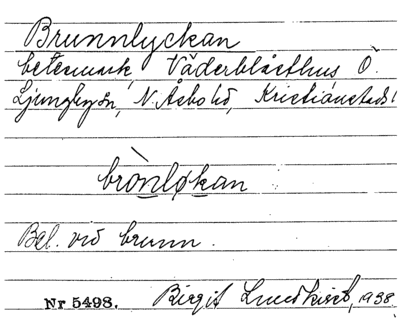 Brunnlyckan
betesmark, Väderblåsthus Ö.
Ljungbyhn, N. Åsbo hd, Kristianstads l
brònløkan
Bel. vid brunn.
Nr 5498. Birgit Lundkvist, 1938